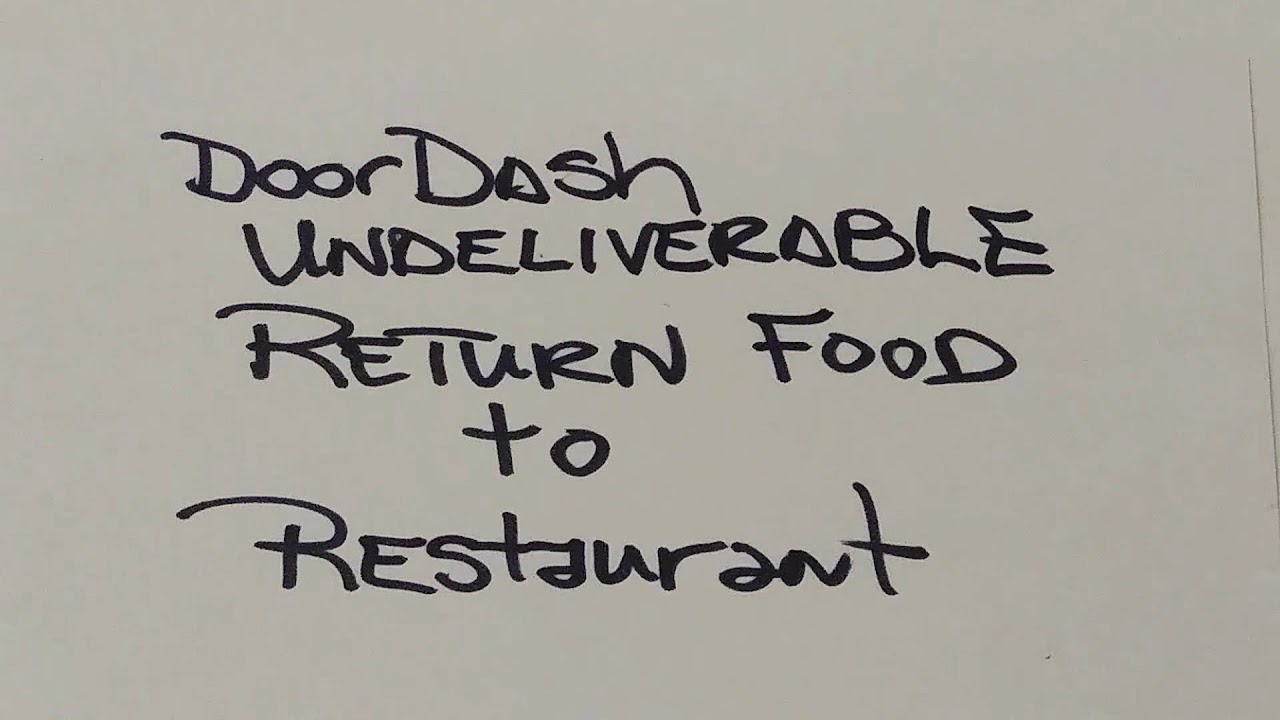 DoorDash
UNDELIVERABLE
RETURN FOOD
to
REStaurant